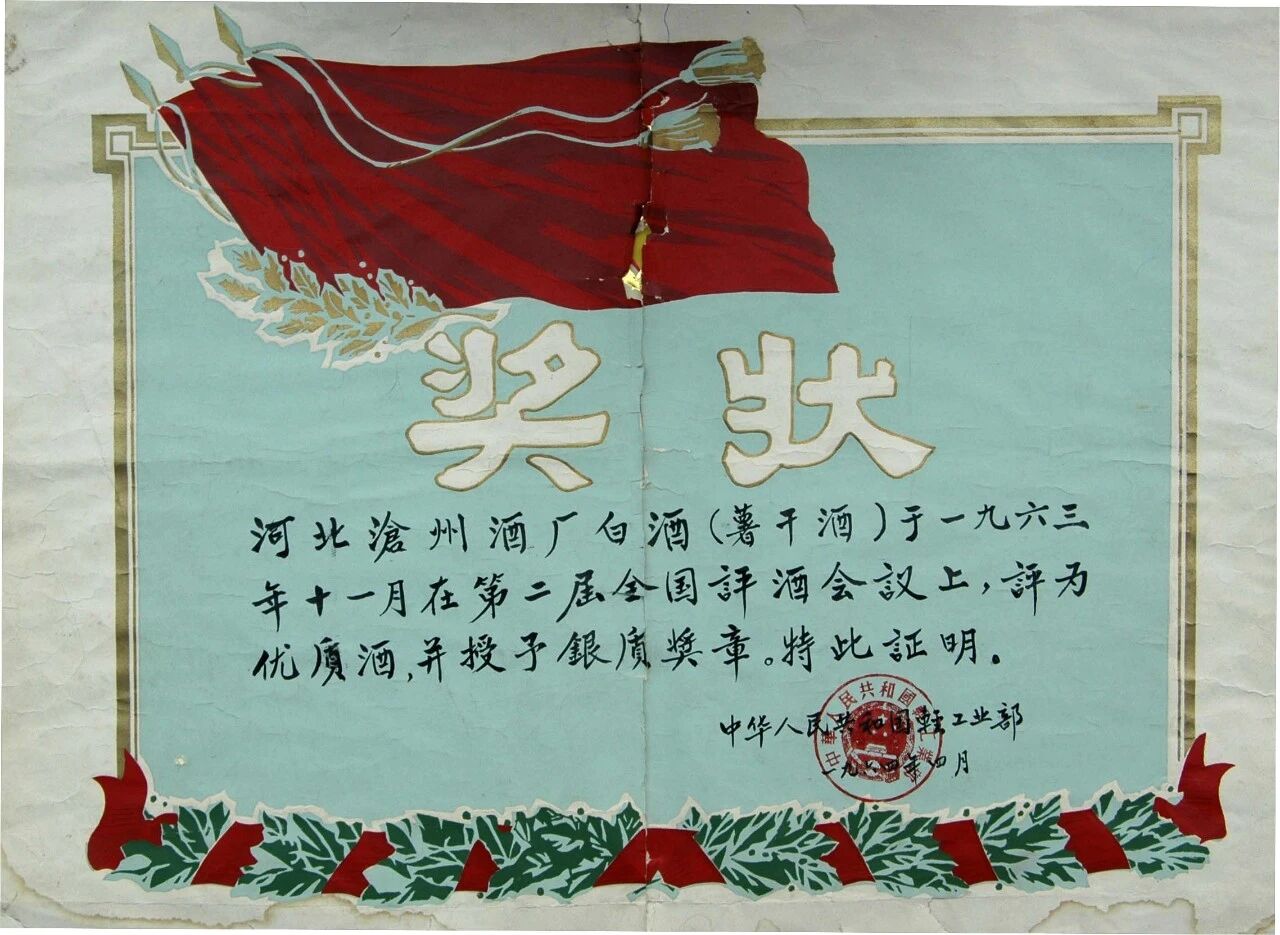 奖状
河北滄州酒厂白酒(薯干酒)于一九六三
年十一月在第二届全国評酒会议上，評为
优质酒，并授予銀质奬章。特此証明。
中华人民共和国轻工业部
一九六四年四月
中華人民共和國